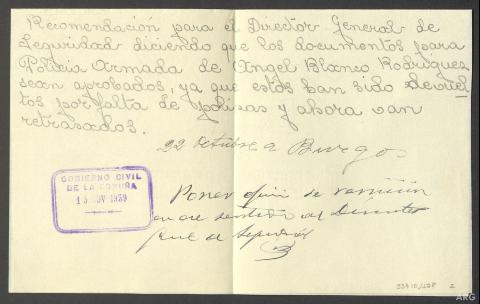 Recomendación para el Director General de
Seguridad diciendo que los documentos para
Policia Armada de Angel Blanco Rodriguez
sean aprobados, ya que estos han sido devuel-
tos por falta de polizas y ahora van
retrasados.
22 octubre a Burgos
GOBIERNO CIVIL
DE LA CORUÑA
13 NOV 1939
Poner de remisión
en ese sentido al Director
Gral de Seguridad
2
ARG